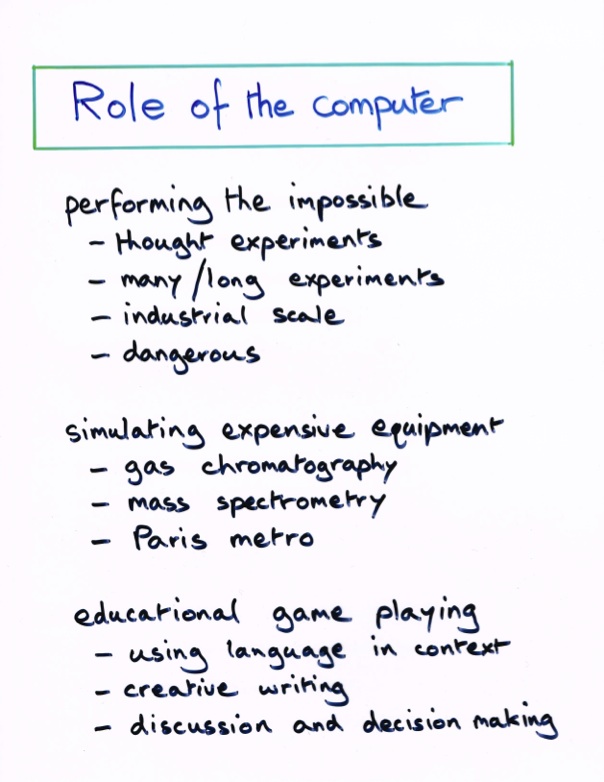 Role of the computer
performing the impossible
- thought experiments
- many/long experiments
- industrial scale
- dangerous
simulating expensive equipment
- gas chromatography
- mass spectrometry
- Paris metro
educational game playing
- using language in context
- creative writing
- discussion and decision making